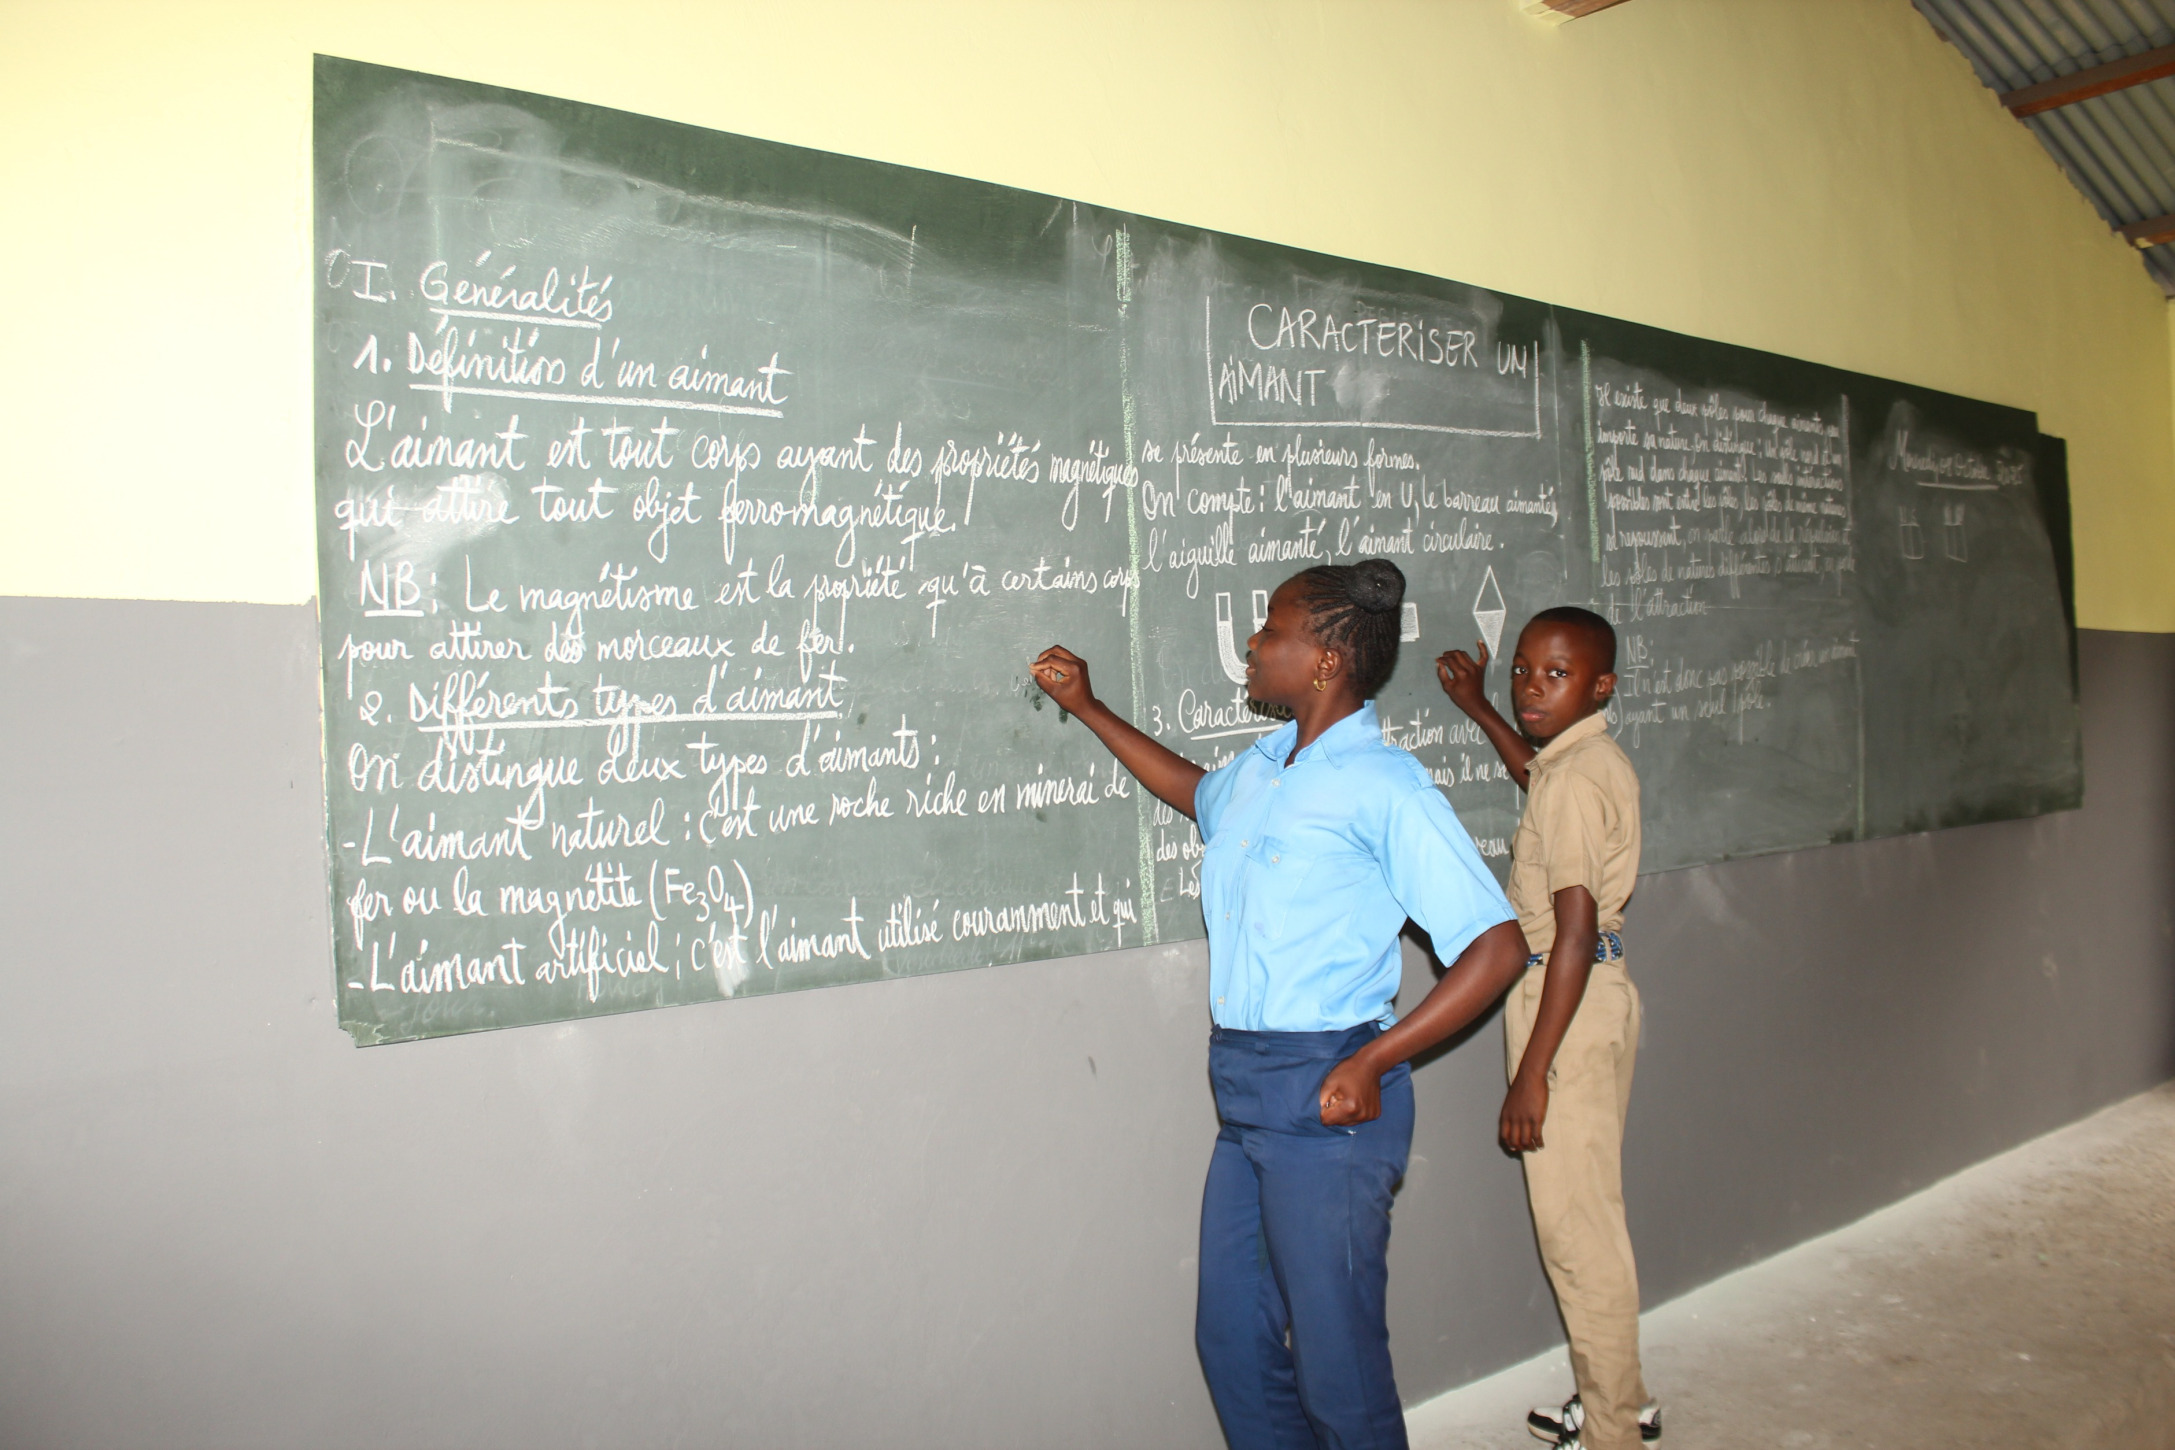 I. Généralités
1. Définition d'un aimant
L'aimant est tout corps ayant des propriétés magnétiques
qui attire tout objet ferromagnétique.
NB: Le magnétisme est la propriété qu'à certains corps
pour attirer des morceaux de fer.
2. Différents types d'aimant
On distingue deux types d'aimants:
-L'aimant naturel: c'est une roche riche en minerai de
fer ou la magnétite (Fe3O4)
-L'aimant artificiel; c'est l'aimant utilisé couramment et qui
CARACTERISER UN
AIMANT
se présente en plusieurs formes.
On compte: l'aimant en U, le barreau aimanté,
l'aiguille aimanté, l'aimant circulaire.
3.
traction avec
mais il ne se
des
des ob
Les
Il existe que deux pôles pour chaque aimants
importe sa nature. On distingue: un pôle nord et un
pôle sud dans chaque aimant. Les seules interactions
possibles sont entre les pôles. Les pôles de même natures
se repoussent, on parle alors de la répulsion et
les pôles de natures différentes s'attirent, on parle
de l'attraction
NB:
Il n'est donc pas possible de créer un aimant
ayant un seul pôle.